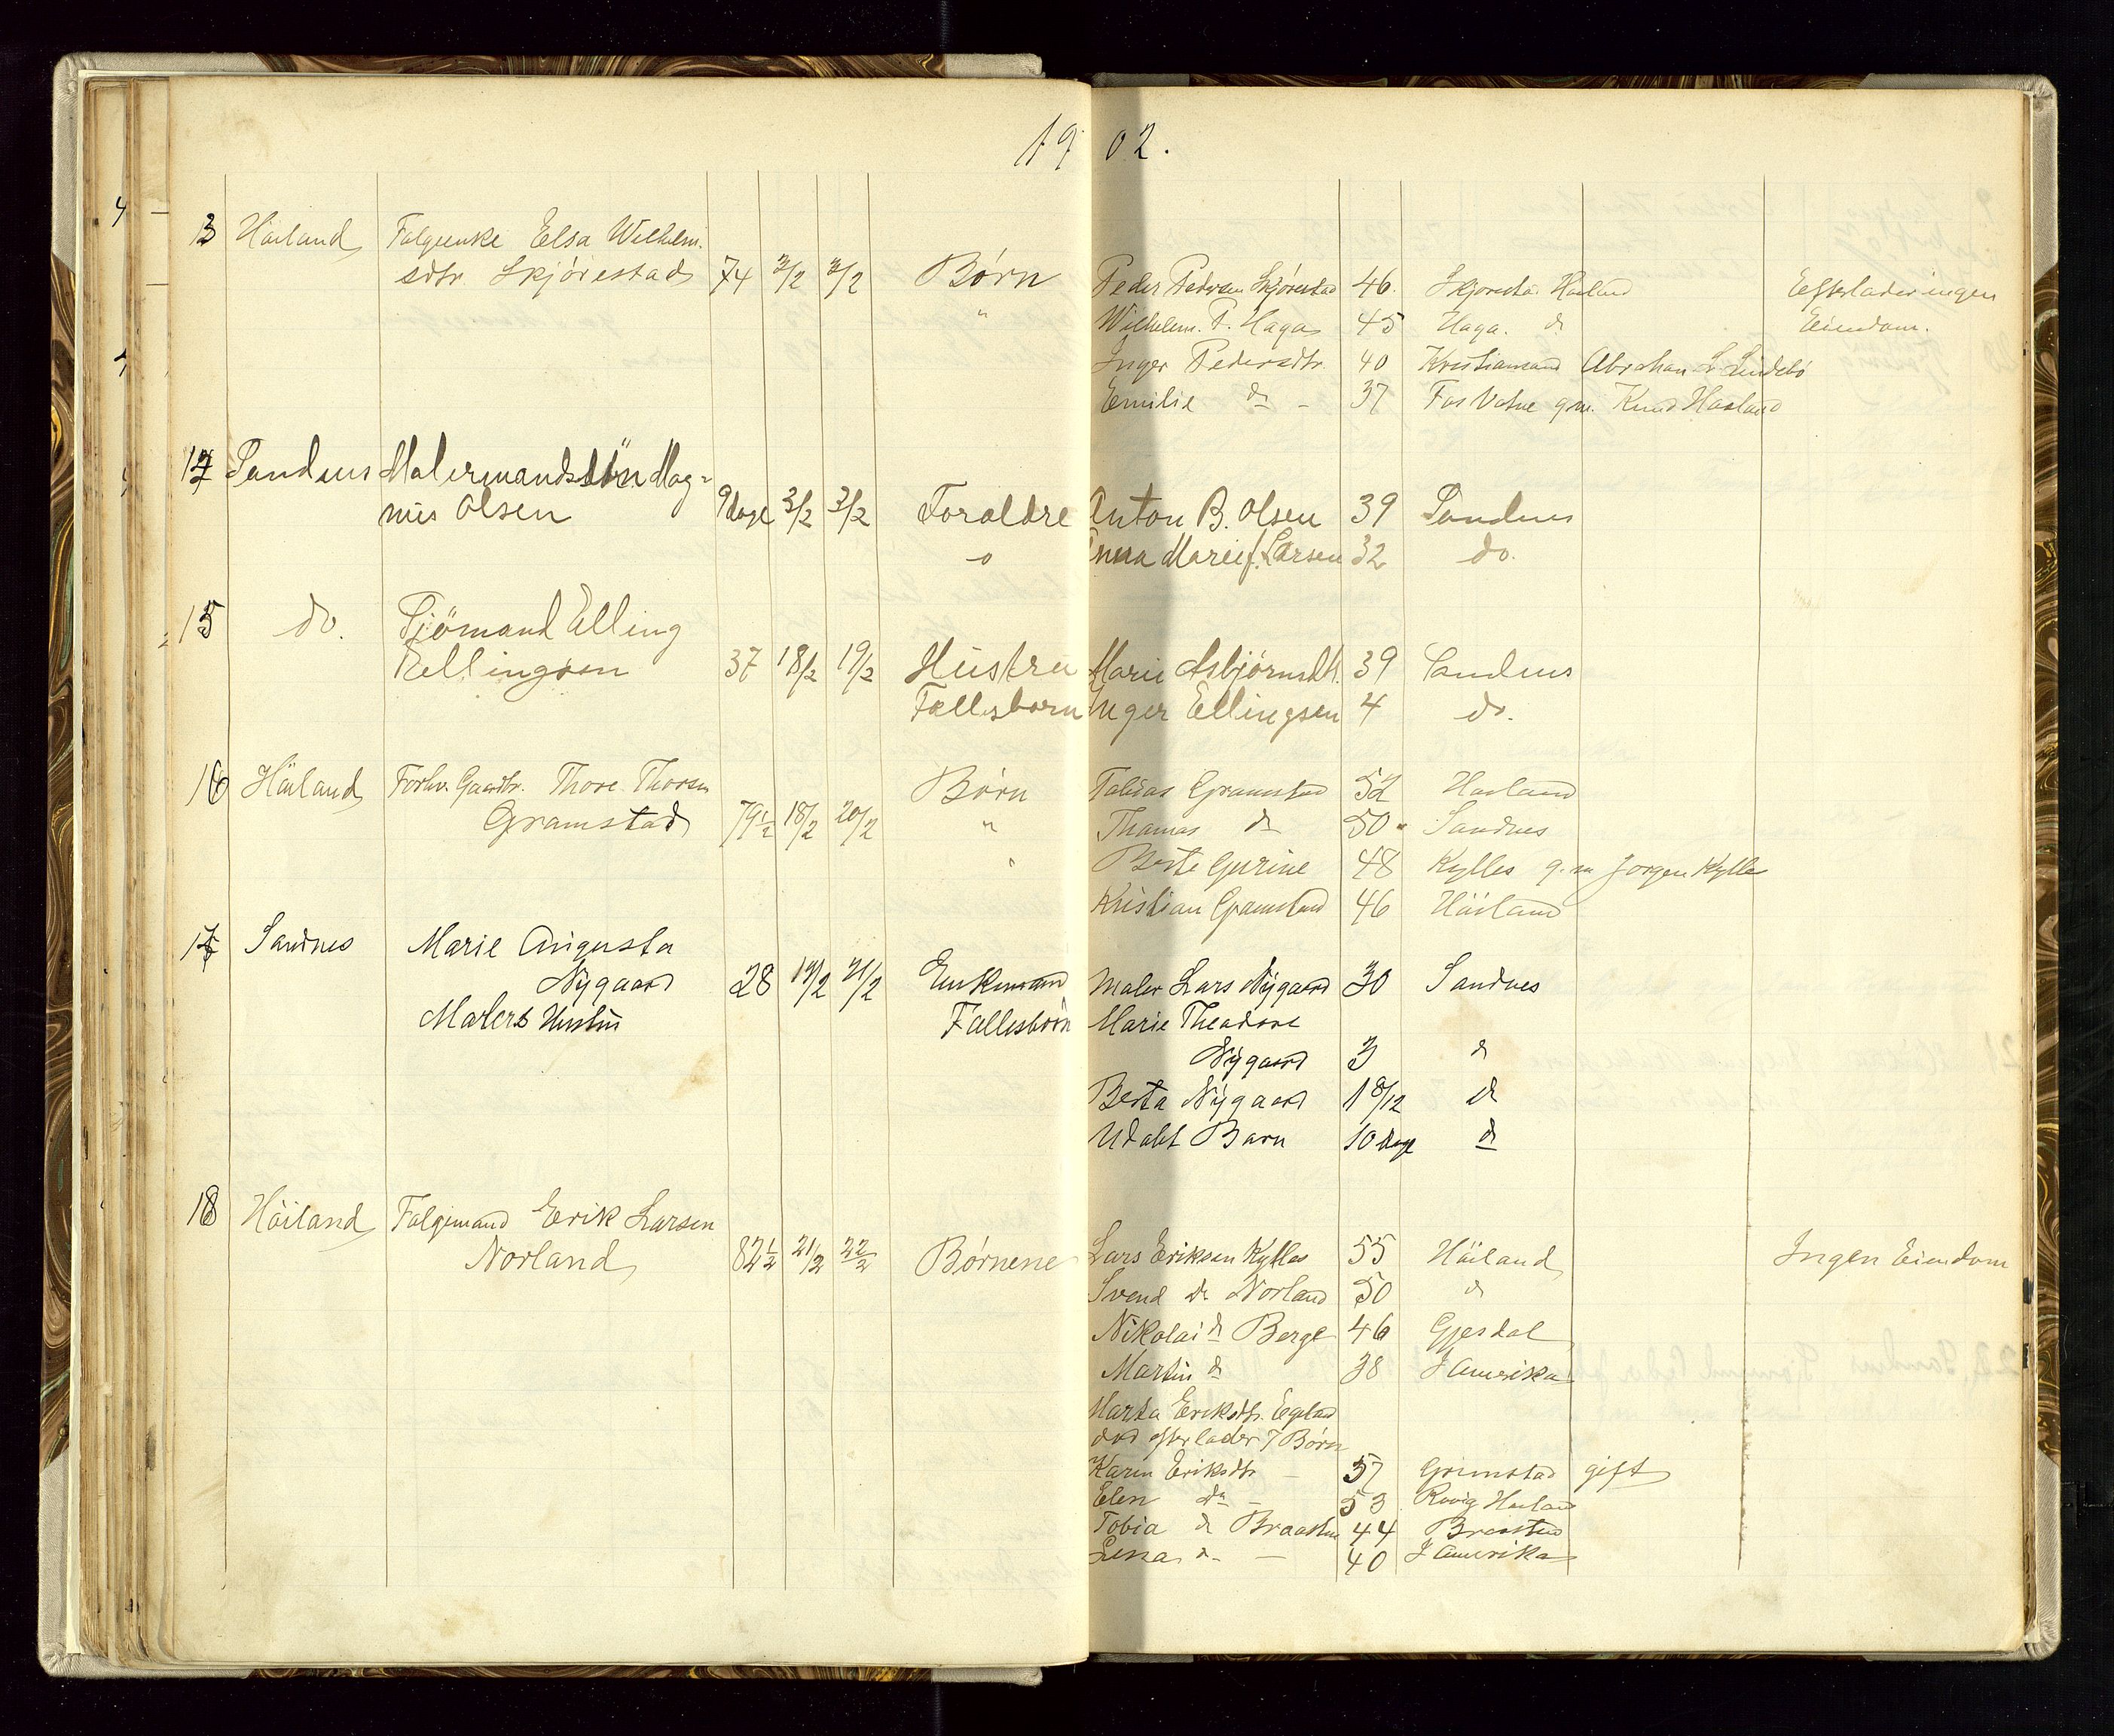 1902.
13 Høiland Folgeenke Elsa Wilhelm.
sdtr. Skjørestad 74 3/2 3/2 Børn Peder Pedersen Skjørestad 46. Skjørestad Høiland Efterlader ingen
" Wilhelm. P. Haga 45 Haga. do Eiendom.
Inger Pedersdtr. 40 Kristiansand Abraham L. Lindebø
Emilie do - 37 Fos Vatne g.m. Knud Høiland
14 Sandnes Malermandssön Mag-
nus Olsen 9 dage 3/2 3/2 Forældre Anton B. Olsen 39 Sandnes
-o Emma Marie f. Larsen 32 do.
15 do. Sjömand Elling
Ellingsen 37 18/2 19/2 Hustru Marie Asbjørnsdt. 39 Sandnes
Fællesbarn Inger Ellingsen 4 do.
16 Høiland Forhv. Gaardbr. Thore Thorsen Børn Tobias Gramstad 52 Høiland
Gramstad 79½ 18/2 20/2 " Thomas do 50 Sandnes
" Berte Gurine 48 Kylles g. m Jørgen Kylles
Kristian Gramstad 46 Høiland
17 Sandnes Marie Augusta
Nygaard 28 19/2 21/2 Enkemand Maler Lars Nygaard 30 Sandnes
Malers Hustru Fællesbörn Marie Theodore
Nygaard 3 do
Berta Nygaard 1 8/12 do
Udøbt Barn 10 dage do
18 Høiland Folgemand Erik Larsen
Norland 82½ 21/2 22/2 Børnene Lars Eriksen Kylles 55 Høiland Ingen Eiendom
Svend do Norland 50 do
Nikolai do Berge 46 Gjesdal
Martin do 38 I Amerika
Marta Eriksdtr. Egeland
død efterlader 7 Børn
Karen Eriksdtr - 57 Grimstad gift
Elen do - 53 Høiland
Tobia do Braasten 44 Braastein
Lena do - 40 I Amerika